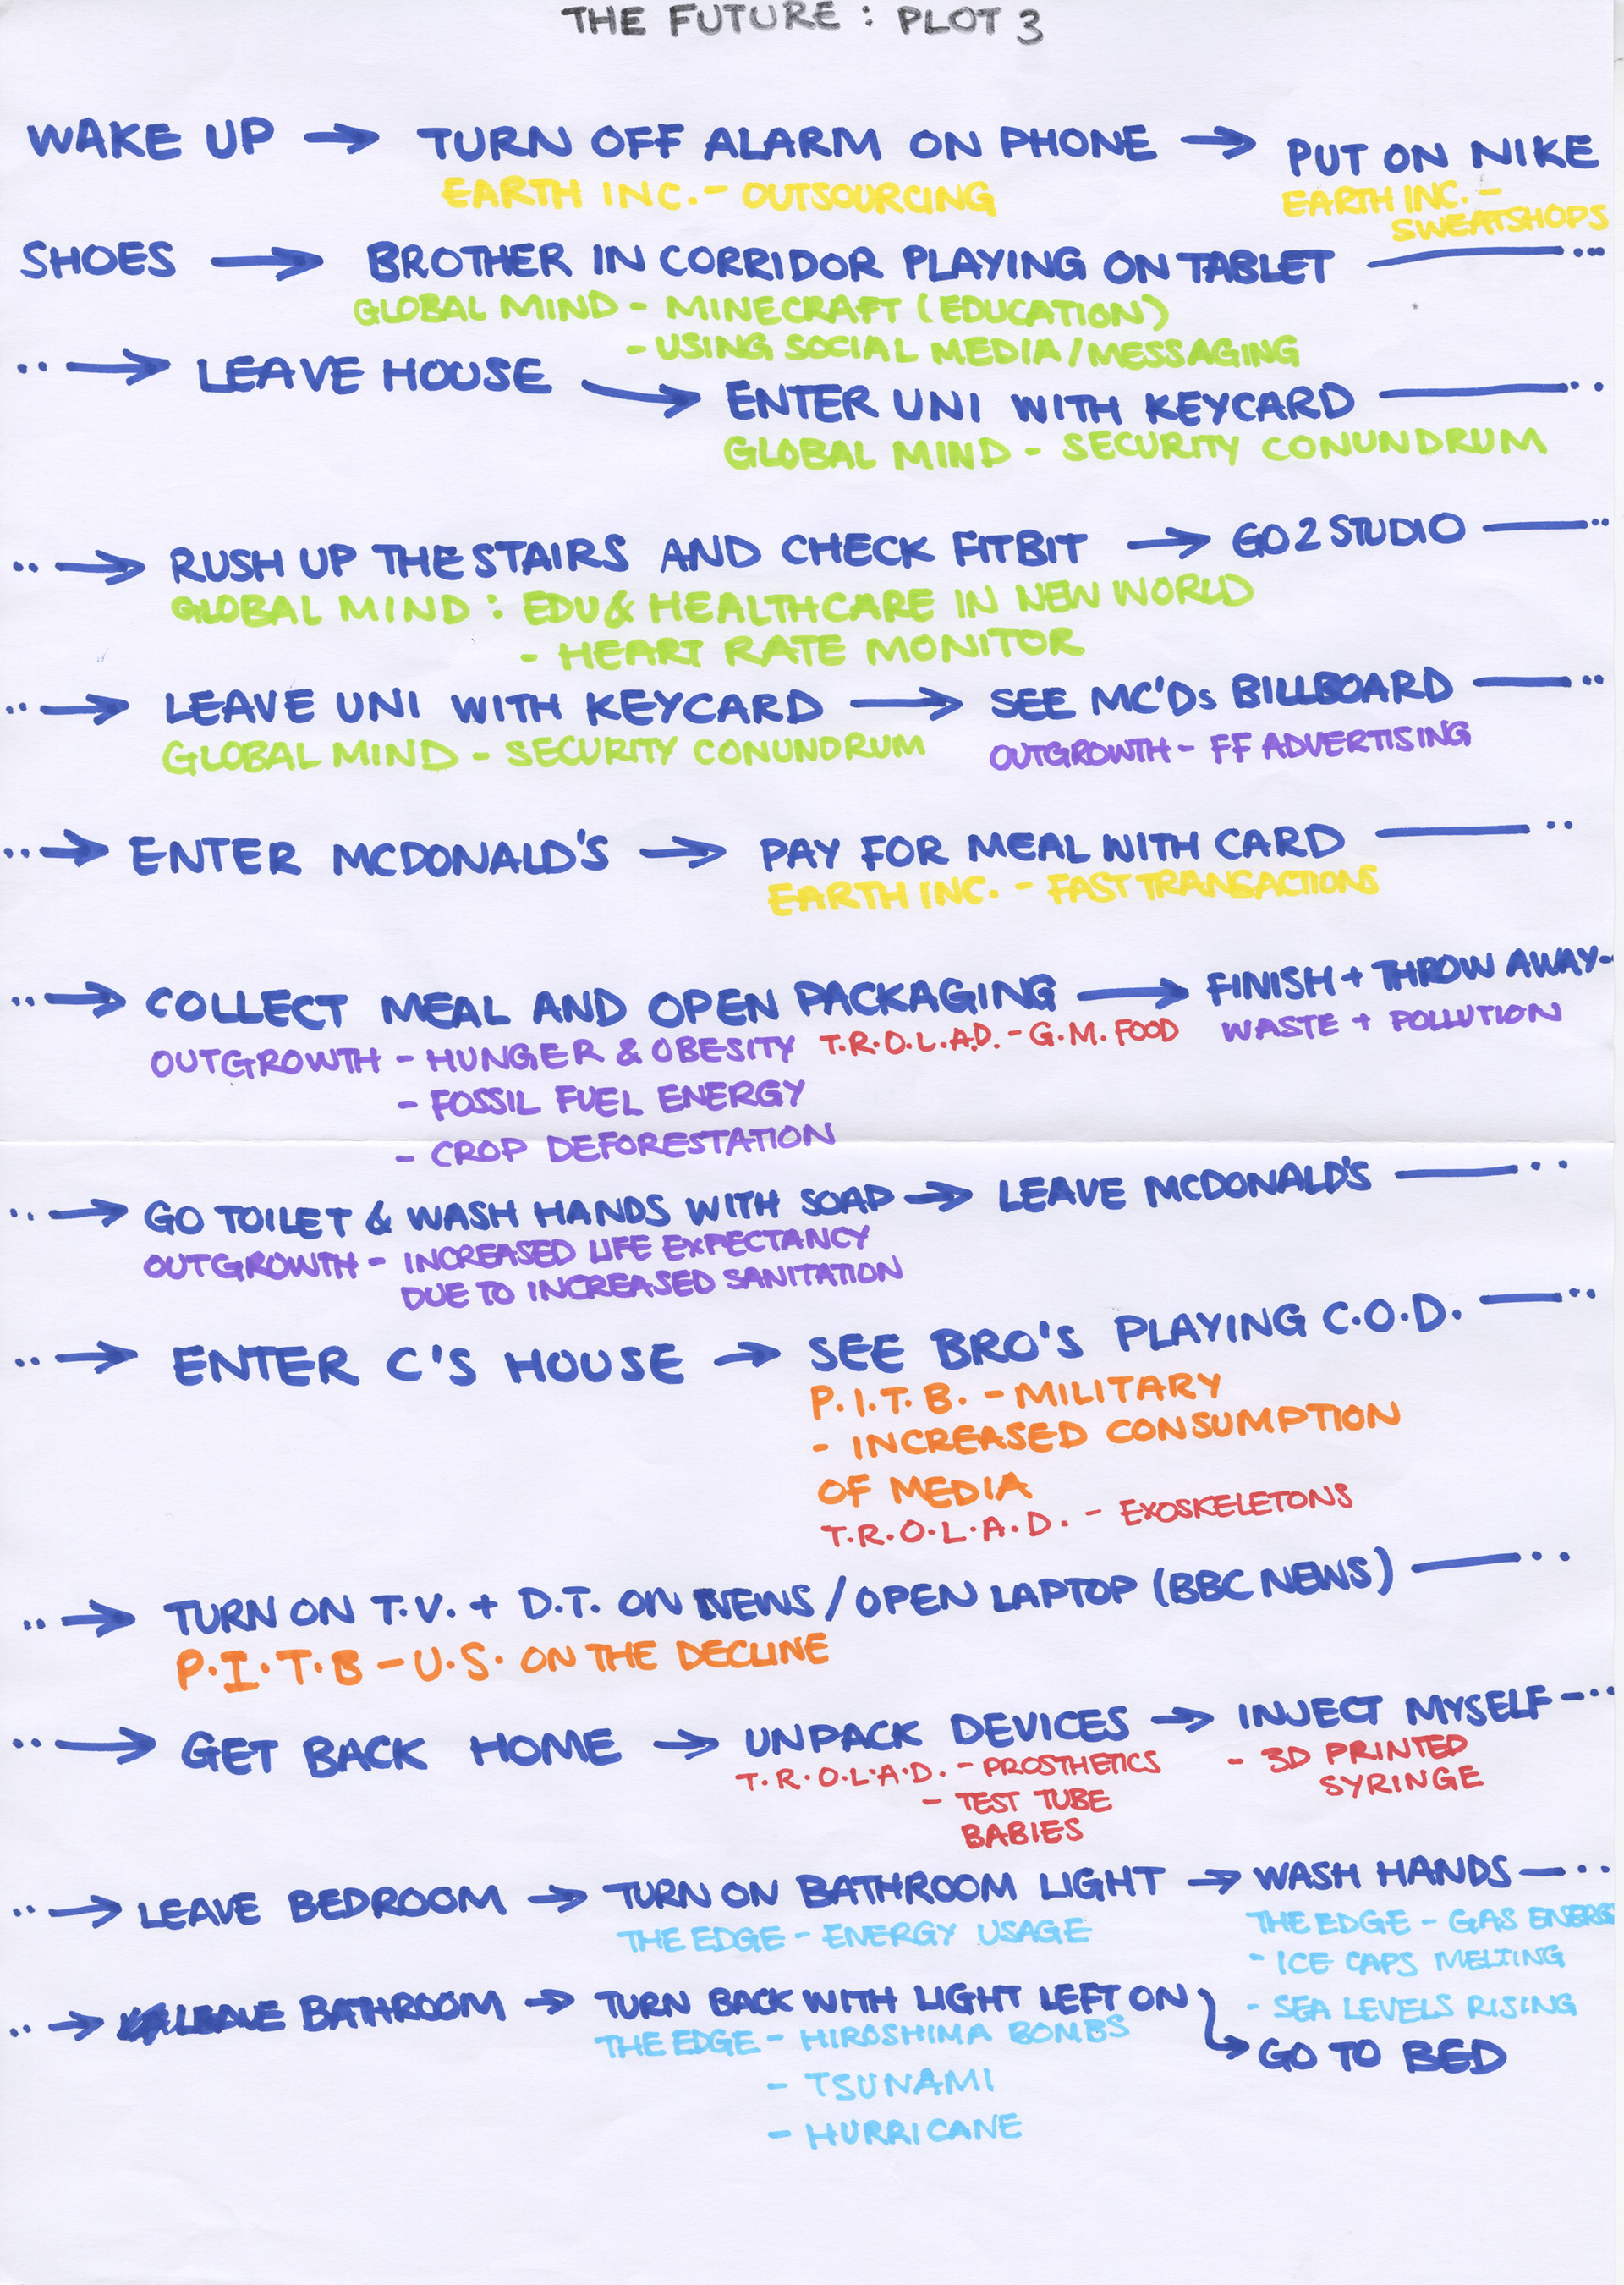 THE FUTURE : PLOT 3
WAKE UP → TURN OFF ALARM ON PHONE → PUT ON NIKE
EARTH INC. - OUTSOURCING
EARTH INC. -
SWEATSHOPS
SHOES → BROTHER IN CORRIDOR PLAYING ON TABLET —...
GLOBAL MIND - MINECRAFT (EDUCATION)
- USING SOCIAL MEDIA / MESSAGING
..→ LEAVE HOUSE → ENTER UNI WITH KEYCARD —..
GLOBAL MIND - SECURITY CONUNDRUM
..→ RUSH UP THE STAIRS AND CHECK FITBIT → GO 2 STUDIO —..
GLOBAL MIND : EDU & HEALTHCARE IN NEW WORLD
- HEART RATE MONITOR
..→ LEAVE UNI WITH KEYCARD → SEE MC'Ds BILLBOARD —..
GLOBAL MIND - SECURITY CONUNDRUM
OUTGROWTH - FF ADVERTISING
..→ ENTER MCDONALD'S → PAY FOR MEAL WITH CARD —..
EARTH INC. - FAST TRANSACTIONS
..→ COLLECT MEAL AND OPEN PACKAGING → FINISH + THROW AWAY-
OUTGROWTH - HUNGER & OBESITY T.R.O.L.A.D. - G.M. FOOD WASTE + POLLUTION
- FOSSIL FUEL ENERGY
- CROP DEFORESTATION
..→ GO TOILET & WASH HANDS WITH SOAP → LEAVE MCDONALD'S —..
OUTGROWTH - INCREASED LIFE EXPECTANCY
DUE TO INCREASED SANITATION
..→ ENTER C'S HOUSE → SEE BRO'S PLAYING C.O.D. —..
P.I.T.B. - MILITARY
- INCREASED CONSUMPTION
OF MEDIA
T.R.O.L.A.D. - EXOSKELETONS
..→ TURN ON T.V. + D.T. ON NEWS / OPEN LAPTOP (BBC NEWS) —..
P.I.T.B - U.S. ON THE DECLINE
..→ GET BACK HOME → UNPACK DEVICES → INJECT MYSELF —..
T.R.O.L.A.D. - PROSTHETICS
- TEST TUBE
BABIES
- 3D PRINTED
SYRINGE
..→ LEAVE BEDROOM → TURN ON BATHROOM LIGHT → WASH HANDS —..
THE EDGE - ENERGY USAGE
THE EDGE - GAS ENERG
- ICE CAPS MELTING
- SEA LEVELS RISING
..→ LEAVE BATHROOM → TURN BACK WITH LIGHT LEFT ON
THE EDGE - HIROSHIMA BOMBS
- TSUNAMI
- HURRICANE
→ GO TO BED